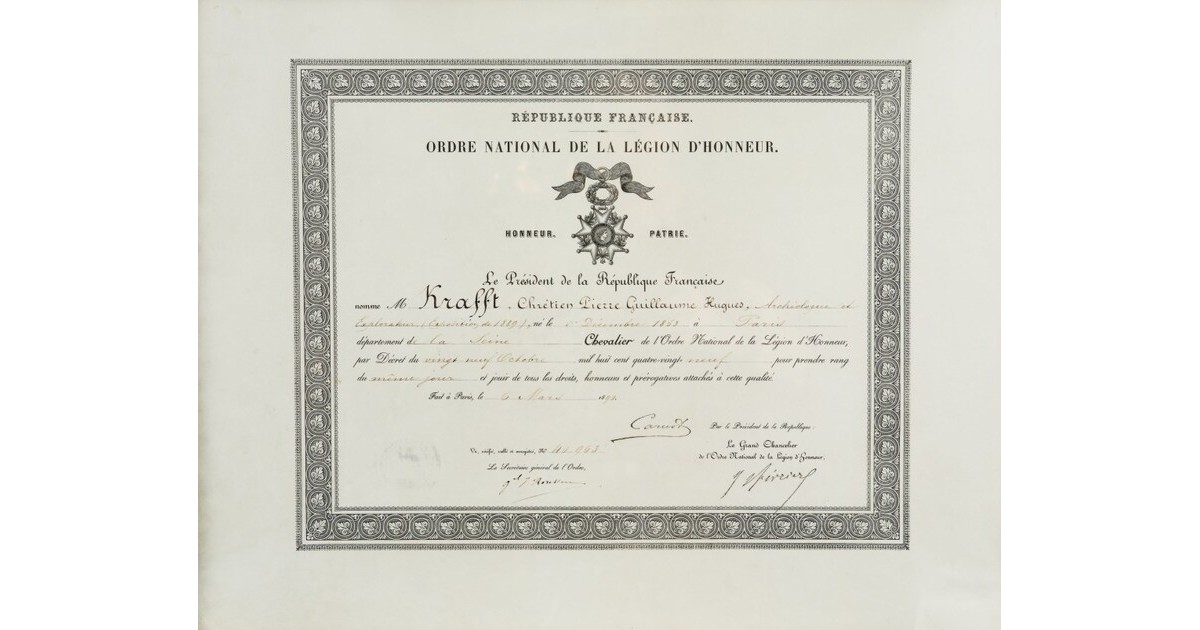 RÉPUBLIQUE FRANÇAISE.
ORDRE NATIONAL DE LA LÉGION D'HONNEUR.
HONNEUR. PATRIE.
Le Président de la République Française
nomme M Krafft, Chrétien Pierre Guillaume Hugues,
Explorateur (Exposition de 1889), né le Décembre 1853 à Paris
département de la Seine Chevalier de l'Ordre National de la Légion d'Honneur,
par Décret du vingt neuf Octobre mil huit cent quatre-vingt neuf pour prendre rang
du même jour et jouir de tous les droits, honneurs et prérogatives attachés à cette qualité.
Fait à Paris, le 6 Mars
Carnot
Par le Président de la République:
Le Grand Chancelier
de l'Ordre National de la Légion d'Honneur,
Vu, vérifié, scellé et enregistré, N°
Le Secrétaire général de l'Ordre,